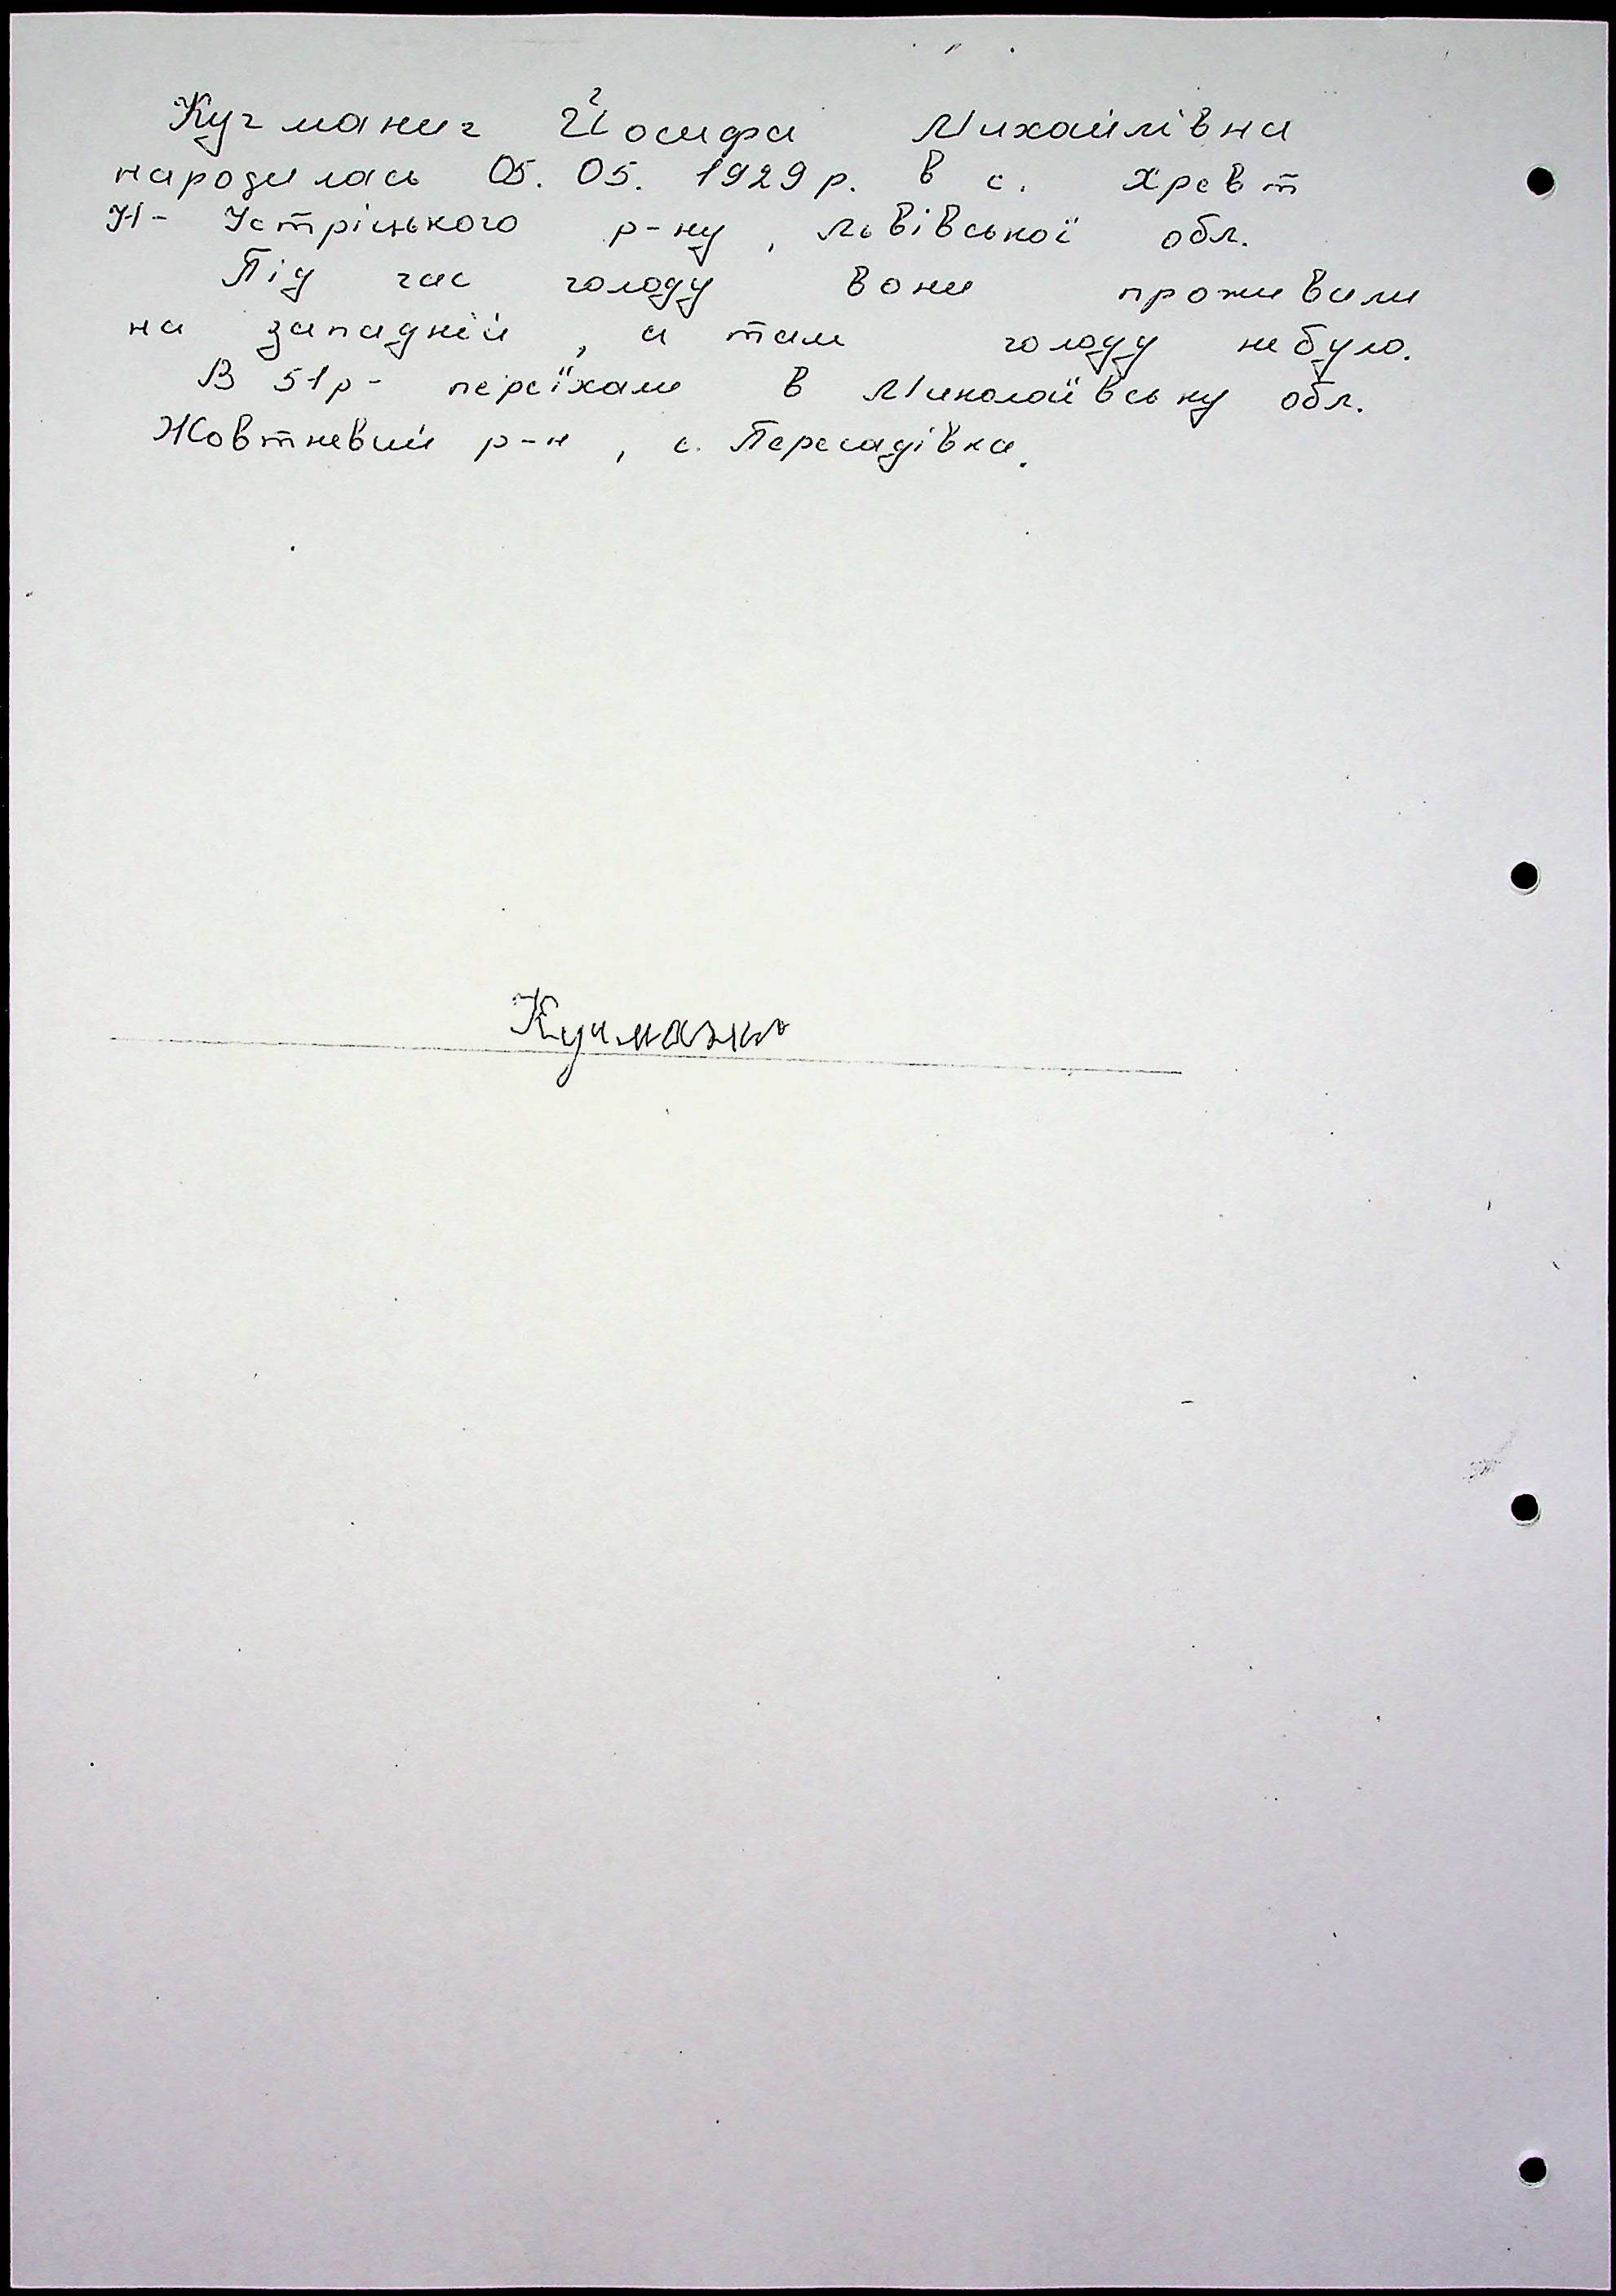 Кучманич Йосифа Михайлівна
народилась 05. 05. 1929 р. в с. Хревт
Н- Устріцького р-ну, Львівської обл.
Під час голоду вони проживали
на западній, а там голоду небуло.
В 51 р- переїхали в Миколаївську обл.
Жовтневий р-н, с. Пересадівка.